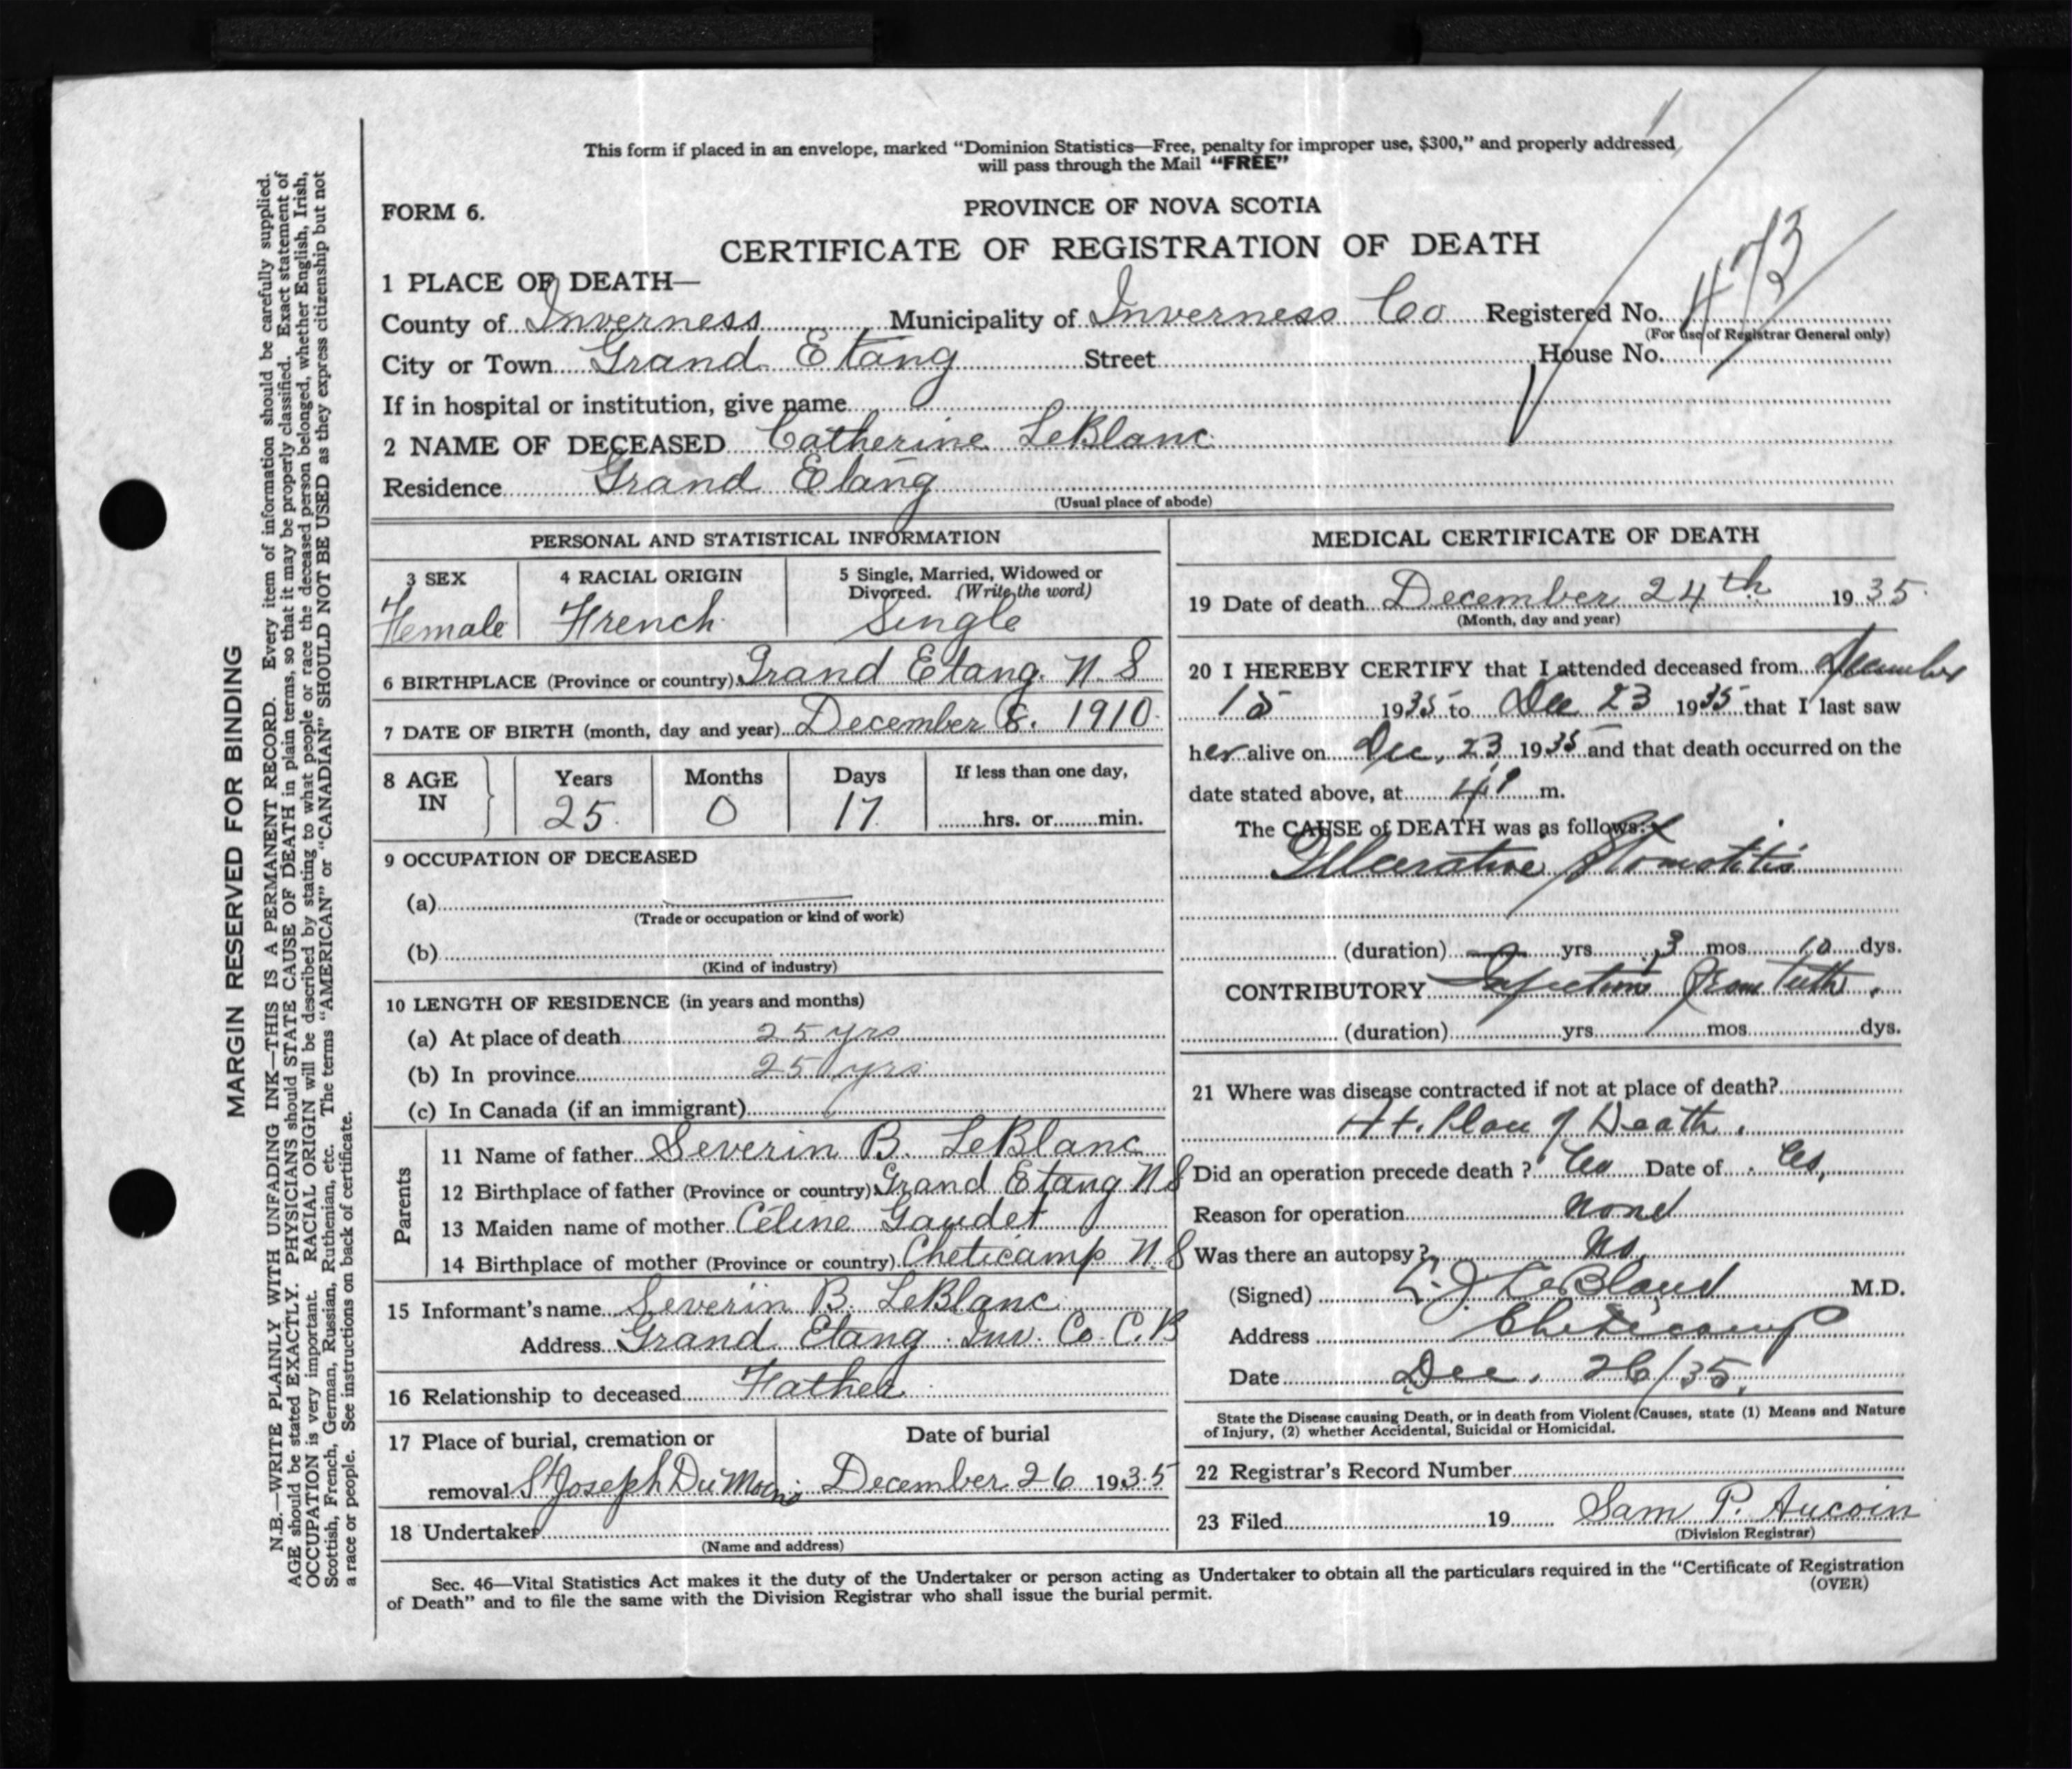 This form if placed in an envelope, marked “Dominion Statistics—Free, penalty for improper use, $300,” and properly addressed
will pass through the Mail “FREE”
FORM 6.
PROVINCE OF NOVA SCOTIA
CERTIFICATE OF REGISTRATION OF DEATH
1 PLACE OF DEATH—
County of Inverness Municipality of Inverness Co Registered No. 473
(For use of Registrar General only)
City or Town Grand Etang Street House No.
If in hospital or institution, give name
2 NAME OF DECEASED Catherine LeBlanc
Residence Grand Etang
(Usual place of abode)
PERSONAL AND STATISTICAL INFORMATION
3 SEX 4 RACIAL ORIGIN 5 Single, Married, Widowed or
Divorced. (Write the word)
Female French Single
6 BIRTHPLACE (Province or country) Grand Etang. N. S
7 DATE OF BIRTH (month, day and year) December 8. 1910.
8 AGE IN Years Months Days If less than one day,
25 0 17 hrs. or min.
9 OCCUPATION OF DECEASED
(a)
(Trade or occupation or kind of work)
(b)
(Kind of industry)
10 LENGTH OF RESIDENCE (in years and months)
(a) At place of death 25 yrs
(b) In province 25 yrs
(c) In Canada (if an immigrant)
Parents
11 Name of father Severin B. LeBlanc
12 Birthplace of father (Province or country) Grand Etang N S
13 Maiden name of mother Céline Gaudet
14 Birthplace of mother (Province or country) Cheticamp N. S
15 Informant's name Severin B. LeBlanc
Address Grand Etang Inv. Co. C. B
16 Relationship to deceased Father
17 Place of burial, cremation or Date of burial
removal St Joseph Du Moine December 26 1935
18 Undertaker
(Name and address)
MEDICAL CERTIFICATE OF DEATH
19 Date of death December 24th 1935
(Month, day and year)
20 I HEREBY CERTIFY that I attended deceased from December
1935 to Dec 23 1935 that I last saw
her alive on Dec, 23, 1935 and that death occurred on the
date stated above, at m.
The CAUSE of DEATH was as follows:
Ulcerative Stomatitis
(duration) yrs. 3 mos. 10 dys.
CONTRIBUTORY Infection from Teeth.
(duration) yrs. mos. dys.
21 Where was disease contracted if not at place of death?
At. Place of Death.
Did an operation precede death? Date of
Reason for operation None
Was there an autopsy? No
(Signed) M.D.
Address Cheticamp
Date Dec. 26/35.
State the Disease causing Death, or in death from Violent Causes, state (1) Means and Nature
of Injury, (2) whether Accidental, Suicidal or Homicidal.
22 Registrar's Record Number
23 Filed 19 Sam P. Aucoin
(Division Registrar)
Sec. 46—Vital Statistics Act makes it the duty of the Undertaker or person acting as Undertaker to obtain all the particulars required in the “Certificate of Registration
of Death” and to file the same with the Division Registrar who shall issue the burial permit. (OVER)
MARGIN RESERVED FOR BINDING
N.B.—WRITE PLAINLY WITH UNFADING INK—THIS IS A PERMANENT RECORD. Every item of information should be carefully supplied.
AGE should be stated EXACTLY. PHYSICIANS should STATE CAUSE OF DEATH in plain terms, so that it may be properly classified. Exact statement of
OCCUPATION is very important. RACIAL ORIGIN will be described by stating to what people or race the deceased person belonged, whether English, Irish,
Scottish, French, German, Russian, Ruthenian, etc. The terms “AMERICAN” or “CANADIAN” SHOULD NOT BE USED as they express citizenship but not
a race or people. See instructions on back of certificate.